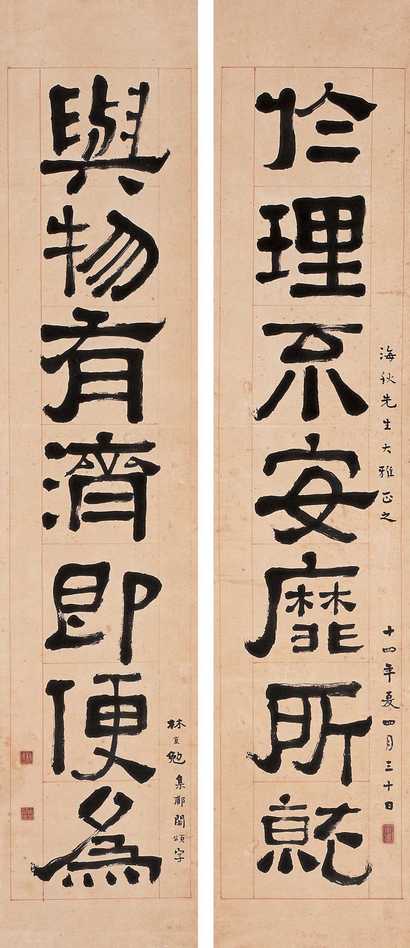 海秋先生大雅正之 十四年夏四月三十日
於理不安靡所就
林直勉集郙閣頌字
與物有濟即便為